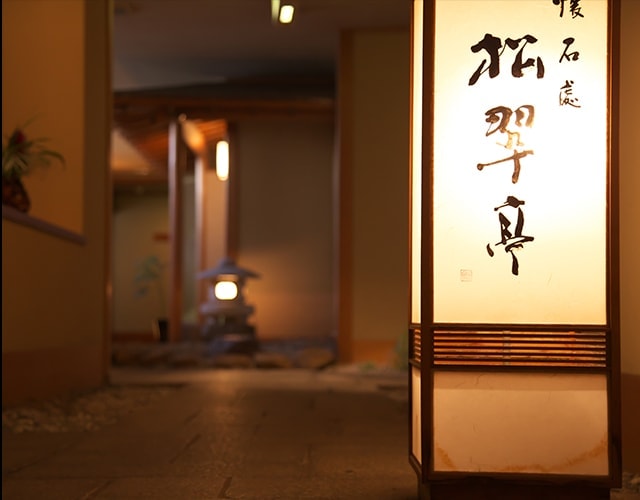 懐石處
松翠亭